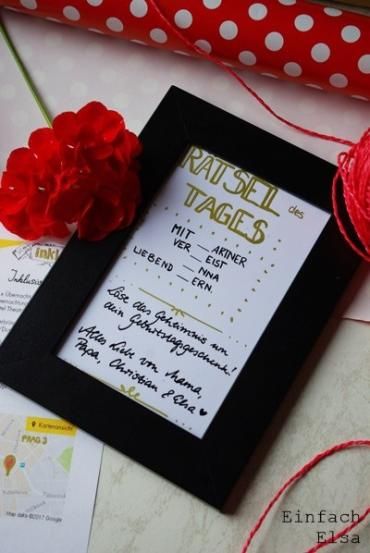 RÄTSEL des
TAGES
MIT __ ARTNER
VER __ EIST
__ NNA
LIEBEND __ ERN.
Löse das Geheimnis um
dein Geburtstagsgeschenk!
Alles Liebe von Mama,
Papa, Christian & Elsa ♥
inkl
Inklusive
Übernach
Kartenansicht
PRAG 3
Map data ©2017 Google
Einfach
Elsa